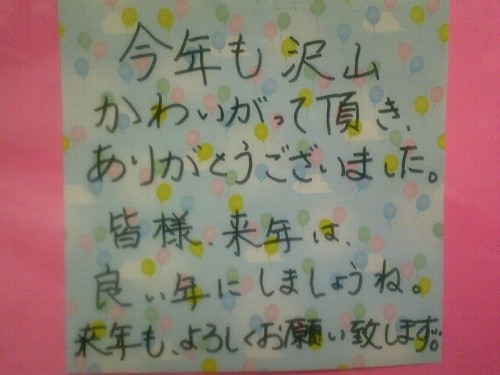 今年も沢山
かわいがって頂き、
ありがとうございました。
皆様、来年は、
良い年にしましょうね。
来年も、よろしくお願い致します。